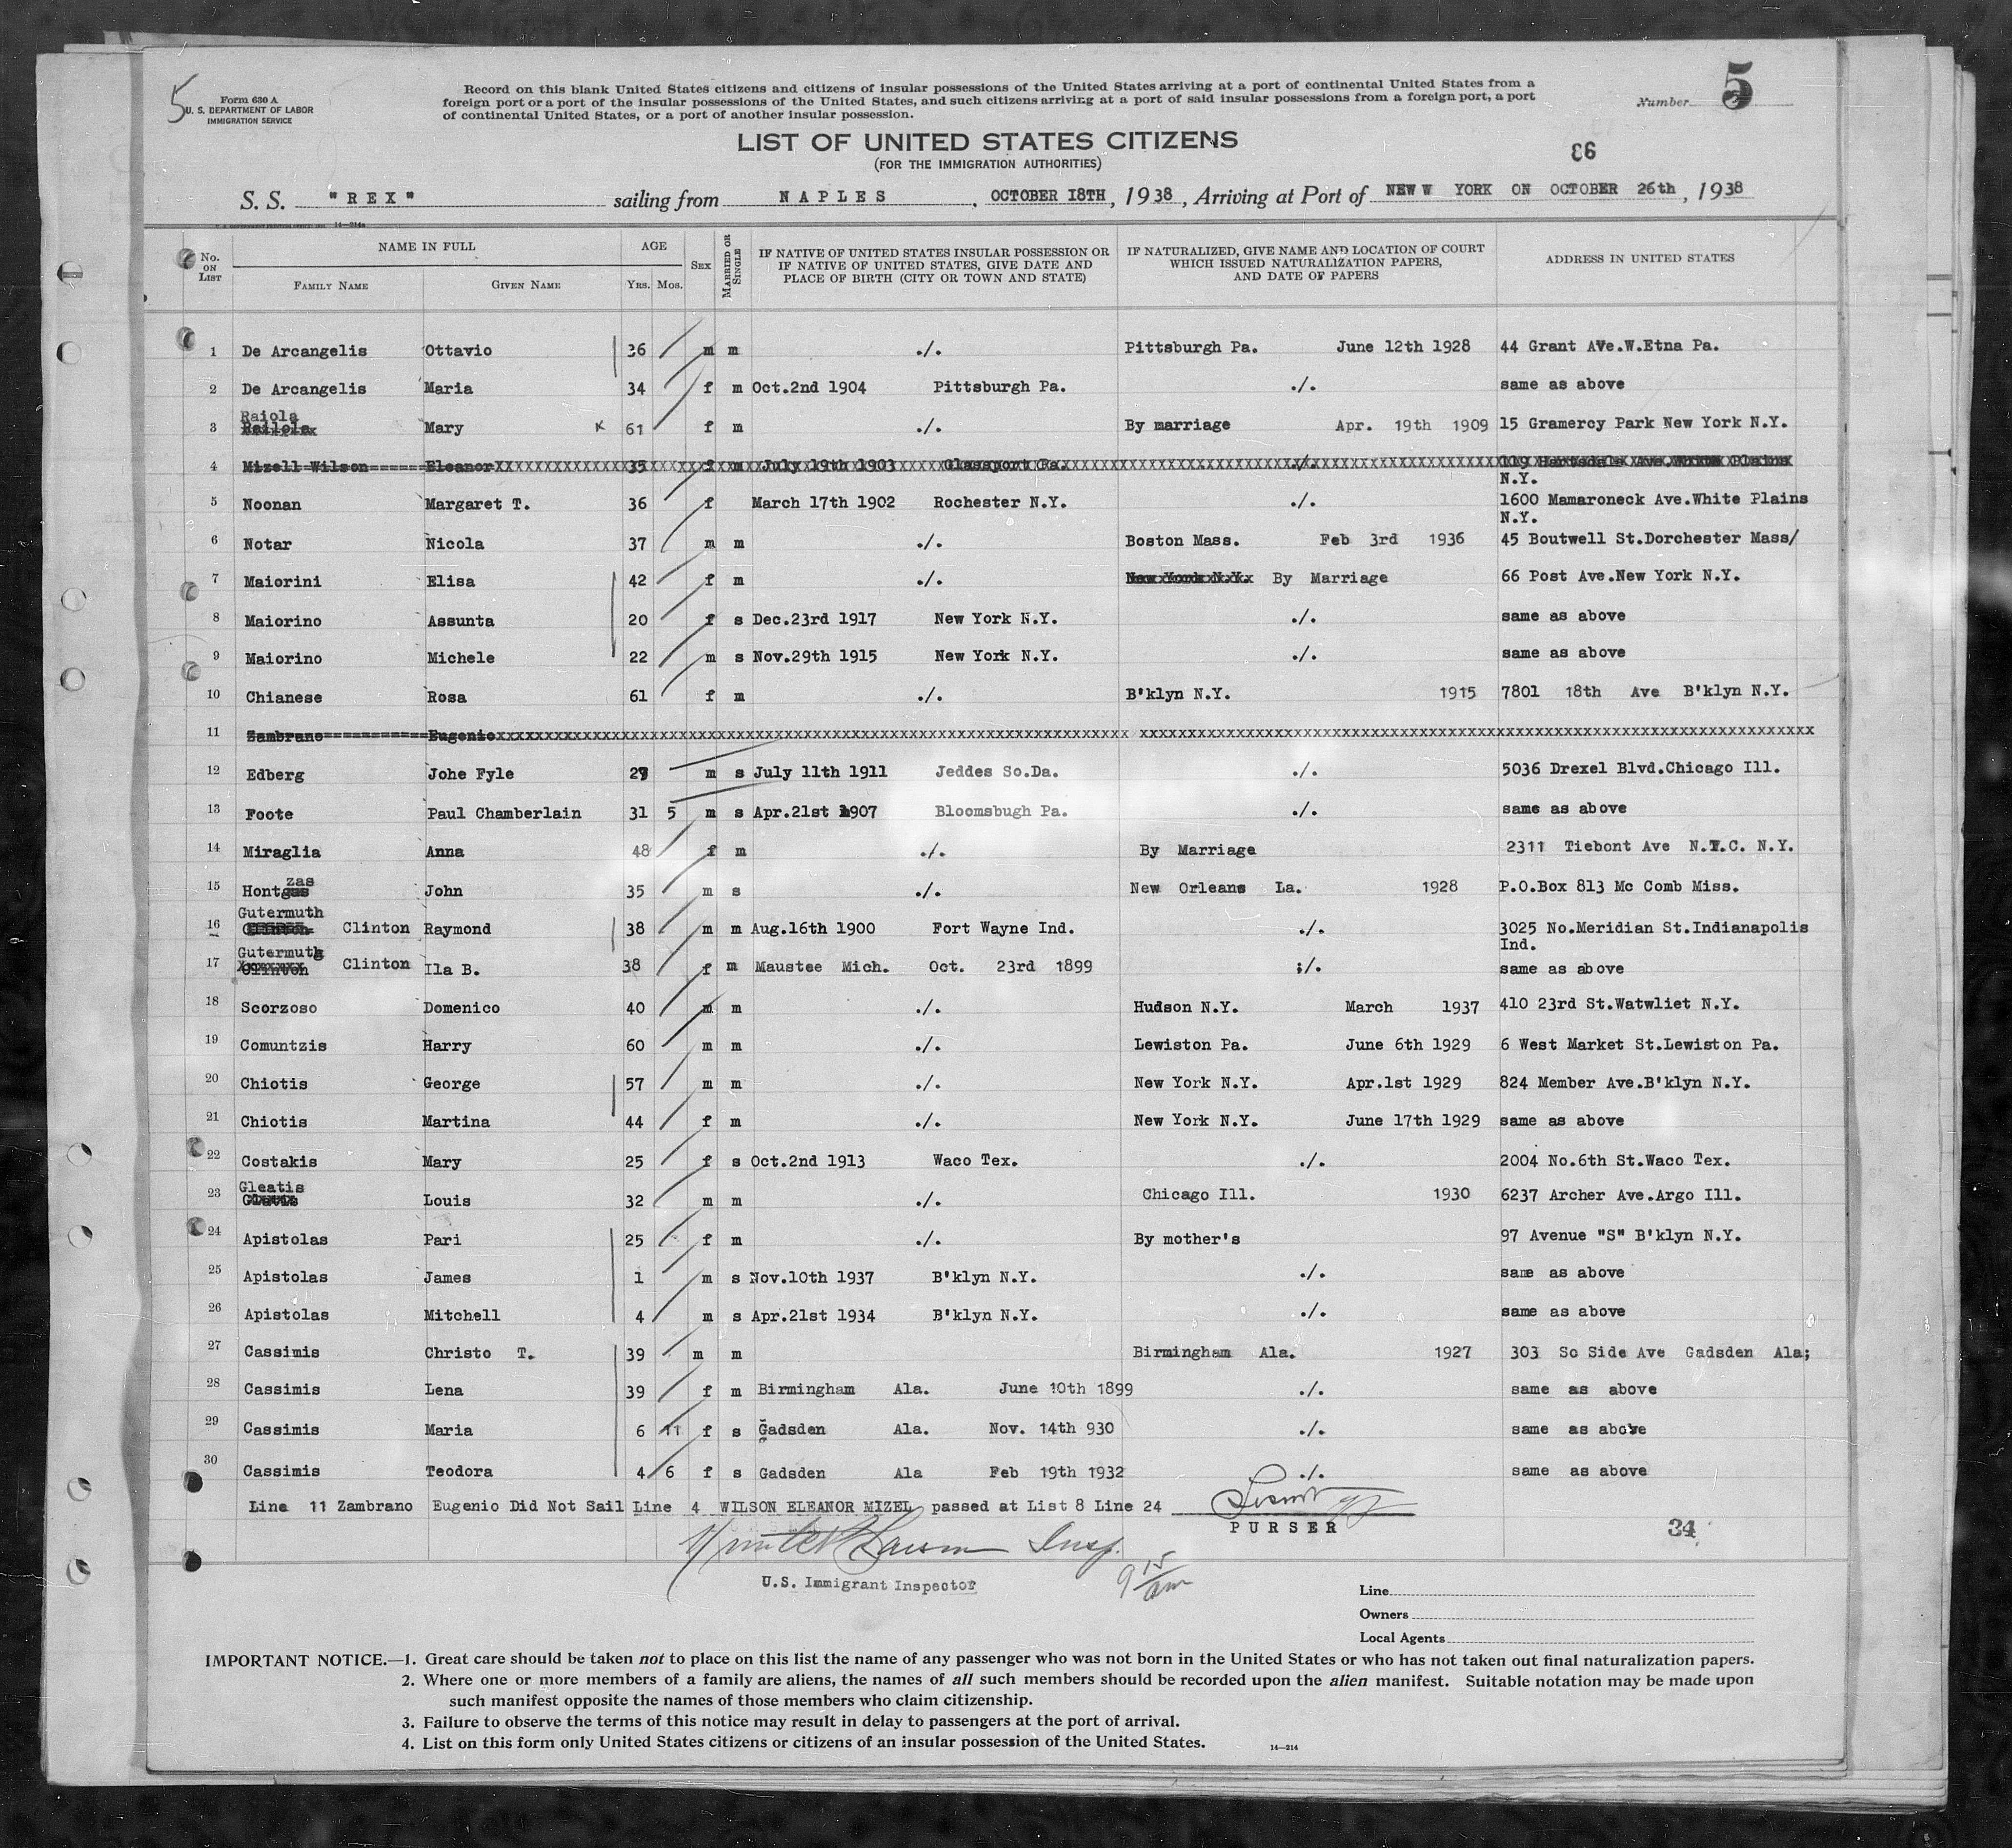 5
Form 630 A
U. S. DEPARTMENT OF LABOR
IMMIGRATION SERVICE
Record on this blank United States citizens and citizens of insular possessions of the United States arriving at a port of continental United States from a
foreign port or a port of the insular possessions of the United States, and such citizens arriving at a port of said insular possessions from a foreign port, a port
of continental United States, or a port of another insular possession.
Number 5
LIST OF UNITED STATES CITIZENS
(FOR THE IMMIGRATION AUTHORITIES)
86
S. S. "REX" sailing from NAPLES, OCTOBER 18TH, 1938, Arriving at Port of NEW W YORK ON OCTOBER 26th, 1938
No. ON LIST NAME IN FULL FAMILY NAME GIVEN NAME AGE YRS. MOS. SEX MARRIED OR SINGLE IF NATIVE OF UNITED STATES INSULAR POSSESSION OR IF NATIVE OF UNITED STATES, GIVE DATE AND PLACE OF BIRTH (CITY OR TOWN AND STATE) IF NATURALIZED, GIVE NAME AND LOCATION OF COURT WHICH ISSUED NATURALIZATION PAPERS, AND DATE OF PAPERS ADDRESS IN UNITED STATES
1 De Arcangelis Ottavio 36 m m ./. Pittsburgh Pa. June 12th 1928 44 Grant AVe.W.Etna Pa.
2 De Arcangelis Maria 34 f m Oct.2nd 1904 Pittsburgh Pa. ./. same as above
Raiola
3 Mary x 61 f m ./. By marriage Apr. 19th 1909 15 Gramercy Park New York N.Y.
4 Mizell Wilson Eleanor 35 f m July 19th 1903 Glassport Pa. ./. 119 Hartsdale Ave.White Plains
N.Y.
5 Noonan Margaret T. 36 f March 17th 1902 Rochester N.Y. ./. 1600 Mamaroneck Ave.White Plains
N.Y.
6 Notar Nicola 37 m m ./. Boston Mass. Feb 3rd 1936 45 Boutwell St.Dorchester Mass/
7 Maiorini Elisa 42 f m ./. New York N.Y. By Marriage 66 Post Ave.New York N.Y.
8 Maiorino Assunta 20 f s Dec.23rd 1917 New York N.Y. ./. same as above
9 Maiorino Michele 22 m s Nov.29th 1915 New York N.Y. ./. same as above
10 Chianese Rosa 61 f m ./. B'klyn N.Y. 1915 7801 18th Ave B'klyn N.Y.
11 Zambrano Eugenio
12 Edberg Johe Fyle 27 m s July 11th 1911 Jeddes So.Da. ./. 5036 Drexel Blvd.Chicago Ill.
13 Foote Paul Chamberlain 31 5 m s Apr.21st 1907 Bloomsbugh Pa. ./. same as above
14 Miraglia Anna 48 f m ./. By Marriage 2311 Tiebont Ave N.Y.C. N.Y.
zas
15 Hont John 35 m s ./. New Orleans La. 1928 P.O.Box 813 Mc Comb Miss.
Gutermuth
16 Clinton Clinton Raymond 38 m m Aug.16th 1900 Fort Wayne Ind. ./. 3025 No.Meridian St.Indianapolis
Ind.
Gutermutg
17 Clinton Clinton Ila B. 38 f m Maustee Mich. Oct. 23rd 1899 ;/. same as above
18 Scorzoso Domenico 40 m m ./. Hudson N.Y. March 1937 410 23rd St.Watwliet N.Y.
19 Comuntzis Harry 60 m m ./. Lewiston Pa. June 6th 1929 6 West Market St.Lewiston Pa.
20 Chiotis George 57 m m ./. New York N.Y. Apr.1st 1929 824 Member Ave.B'klyn N.Y.
21 Chiotis Martina 44 f m ./. New York N.Y. June 17th 1929 same as above
22 Costakis Mary 25 f s Oct.2nd 1913 Waco Tex. ./. 2004 No.6th St.Waco Tex.
Gleatis
23 Louis 32 m m ./. Chicago Ill. 1930 6237 Archer Ave.Argo Ill.
24 Apistolas Pari 25 f m ./. By mother's 97 Avenue "S" B'klyn N.Y.
25 Apistolas James 1 m s Nov.10th 1937 B'klyn N.Y. ./. same as above
26 Apistolas Mitchell 4 m s Apr.21st 1934 B'klyn N.Y. ./. same as above
27 Cassimis Christo T. 39 m m Birmingham Ala. 1927 303 So Side Ave Gadsden Ala;
28 Cassimis Lena 39 f m Birmingham Ala. June 10th 1899 ./. same as above
29 Cassimis Maria 6 11 f s Gadsden Ala. Nov. 14th 930 ./. same as above
30 Cassimis Teodora 4 6 f s Gadsden Ala Feb 19th 1932 ./. same as above
Line 11 Zambrano Eugenio Did Not Sail Line 4 WILSON ELEANOR MIZEL passed at List 8 Line 24
PURSER
34
Insp.
U.S. Immigrant Inspector
9 15/am
Line
Owners
Local Agents
IMPORTANT NOTICE.—1. Great care should be taken not to place on this list the name of any passenger who was not born in the United States or who has not taken out final naturalization papers.
2. Where one or more members of a family are aliens, the names of all such members should be recorded upon the alien manifest. Suitable notation may be made upon
such manifest opposite the names of those members who claim citizenship.
3. Failure to observe the terms of this notice may result in delay to passengers at the port of arrival.
4. List on this form only United States citizens or citizens of an insular possession of the United States.
14—214